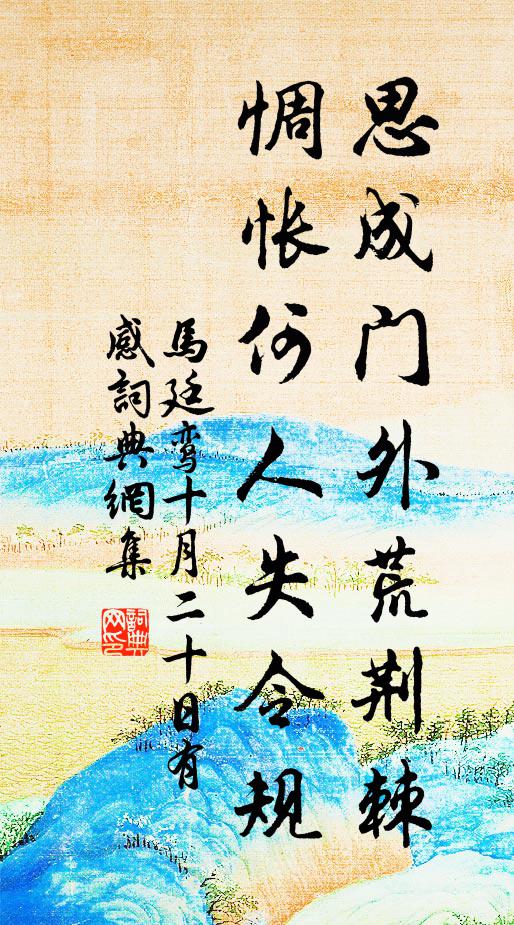 思成门外荒荆棘
惆怅何人失令规
馬廷鸾十月二十日有
感詞典網集
詞典
网印